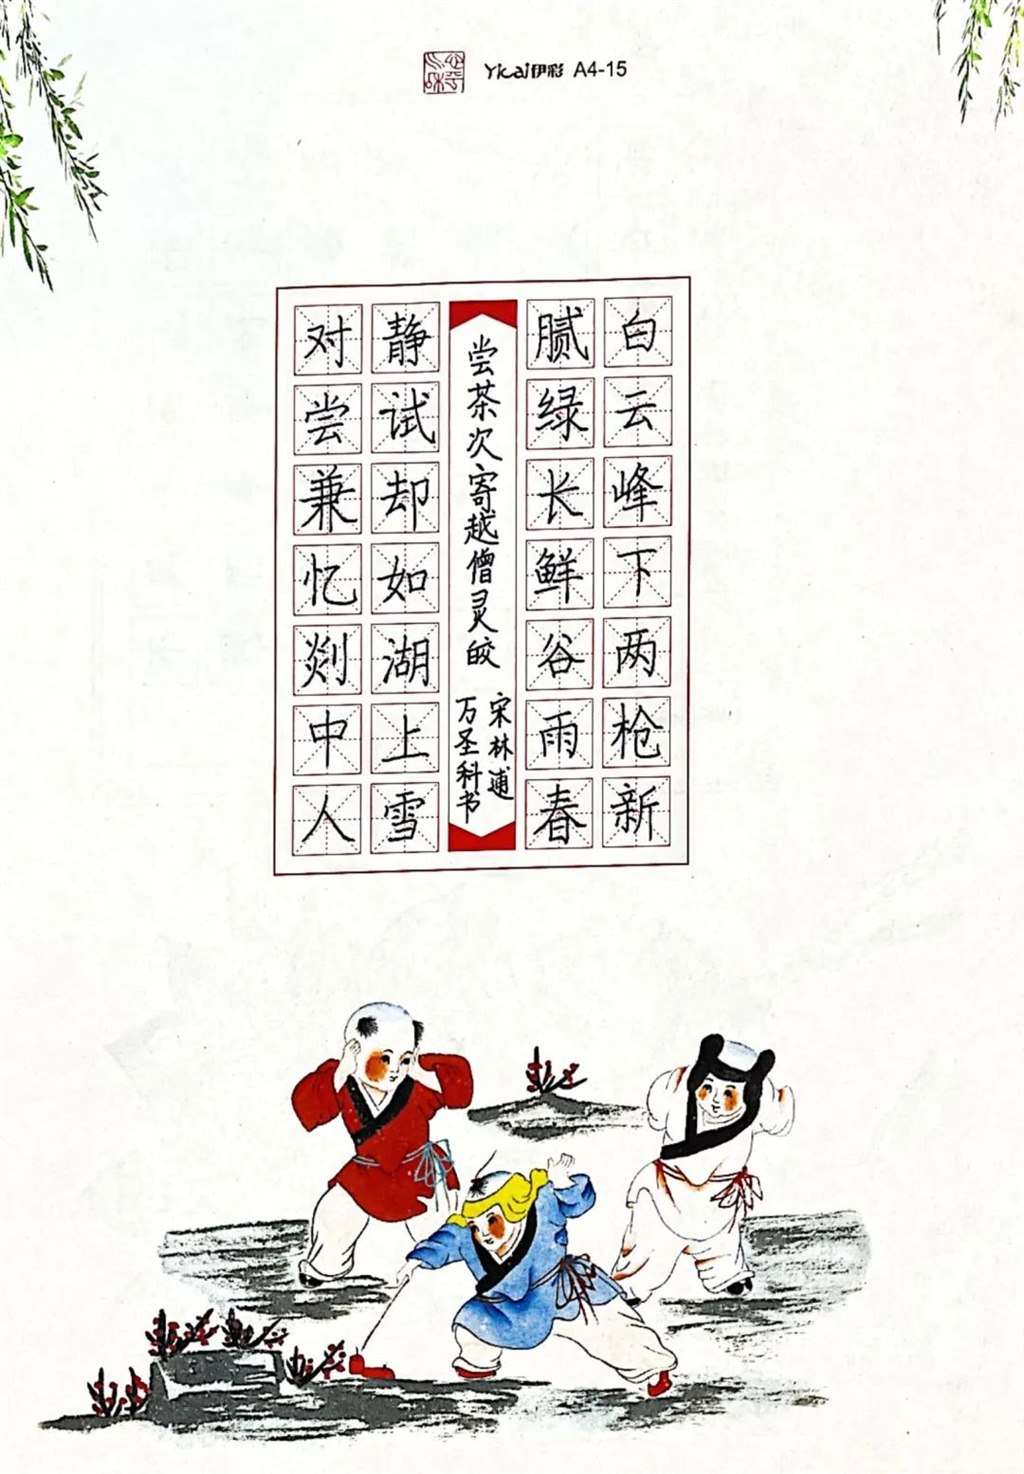 Yicai伊彩 A4-15
白云峰下两枪新
腻绿长鲜谷雨春
尝茶次寄越僧灵皎
宋林逋
万圣科书
静试却如湖上雪
对尝兼忆剡中人